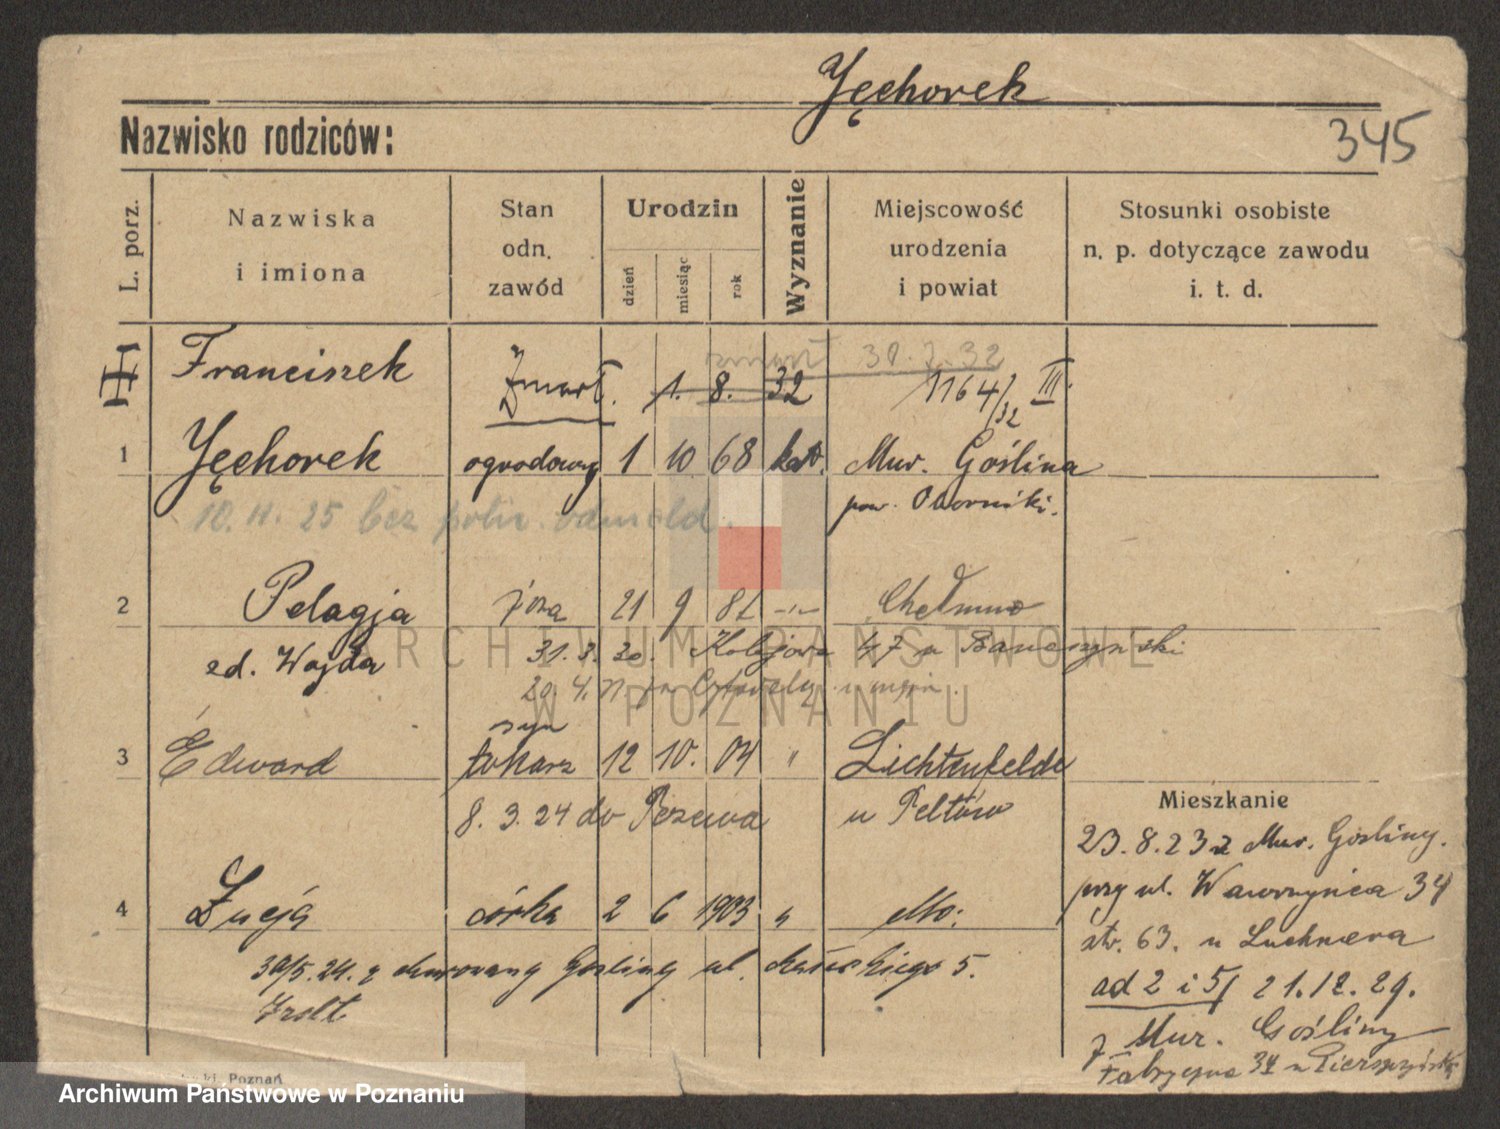 Jęchorek
Nazwisko rodziców:
345
L. porz.
Nazwiska
i imiona
Stan
odn.
zawód
Urodzin
dzień
miesiąc
rok
Wyznanie
Miejscowość
urodzenia
i powiat
Stosunki osobiste
n. p. dotyczące zawodu
i. t. d.
zmarł 30.7.32
Franciszek Zmarł. 1. 8. 32 1164/32 III.
1 Jęchorek ogrodowy 1 10 68 kat. Mur. Goślina
pow. Oborniki.
10. 11. 25 bez polic. odmeld.
2 Pelagja żona 21 9 82 -"- Chełmno
zd. Wojda 31. 3. 30. Kolejowa 47 u
20. 4.
syn
3 Edward tokarz 12 10. 04 " Lichtenfelde
8. 3. 24 do u Peltów
Mieszkanie
23. 8. 23 z Mur. Gosliny.
przy ul. Wawrzyńca 34
4 Łucja córka 2 6 1903 " dto:
str. 63. u Luchnera
30/5. 24. z Murowany Gosliny ul. 5.
ad 2 i 5/ 21. 12. 29.
z Mur. Gośliny
Fabryczna 34 u
Poznań
ARCHIWUM PAŃSTWOWE
W POZNANIU
Archiwum Państwowe w Poznaniu